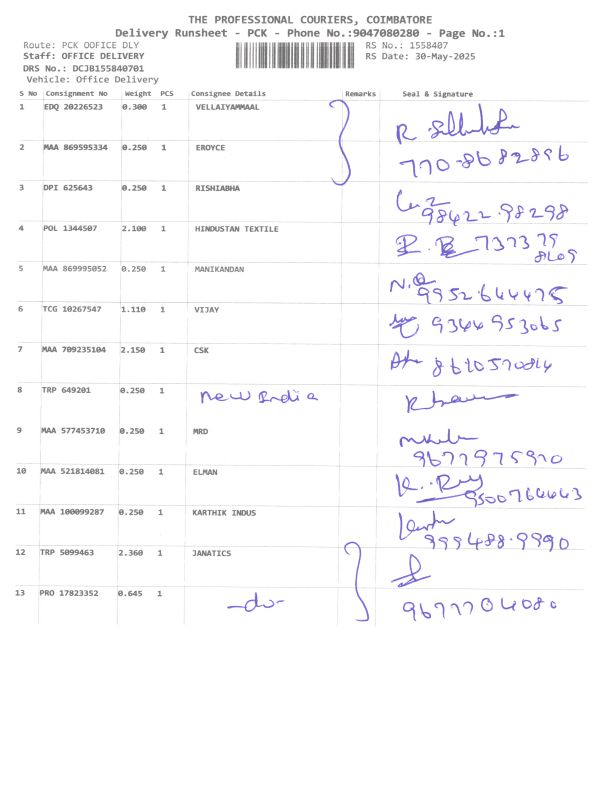 THE PROFESSIONAL COURIERS, COIMBATORE
Delivery Runsheet - PCK - Phone No.:9047080280 - Page No.:1
Route: PCK OOFICE DLY RS No.: 1558407
Staff: OFFICE DELIVERY RS Date: 30-May-2025
DRS No.: DCJB155840701
Vehicle: Office Delivery
S No Consignment No Weight PCS Consignee Details Remarks Seal & Signature
1 EDQ 20226523 0.300 1 VELLAIYAMMAAL
2 MAA 869595334 0.250 1 EROYCE 770-8682896
3 DPI 625643 0.250 1 RISHIABHA 98422-98298
4 POL 1344507 2.100 1 HINDUSTAN TEXTILE 737379
5 MAA 869995052 0.250 1 MANIKANDAN 9952644475
6 TCG 10267547 1.110 1 VIJAY 9344953065
7 MAA 709235104 2.150 1 CSK
8 TRP 649201 0.250 1 New India
9 MAA 577453710 0.250 1 MRD 9677975910
10 MAA 521814081 0.250 1 ELMAN 9500764443
11 MAA 100099287 0.250 1 KARTHIK INDUS 999488-9990
12 TRP 5099463 2.360 1 JANATICS
13 PRO 17823352 0.645 1 -do- 9677704080